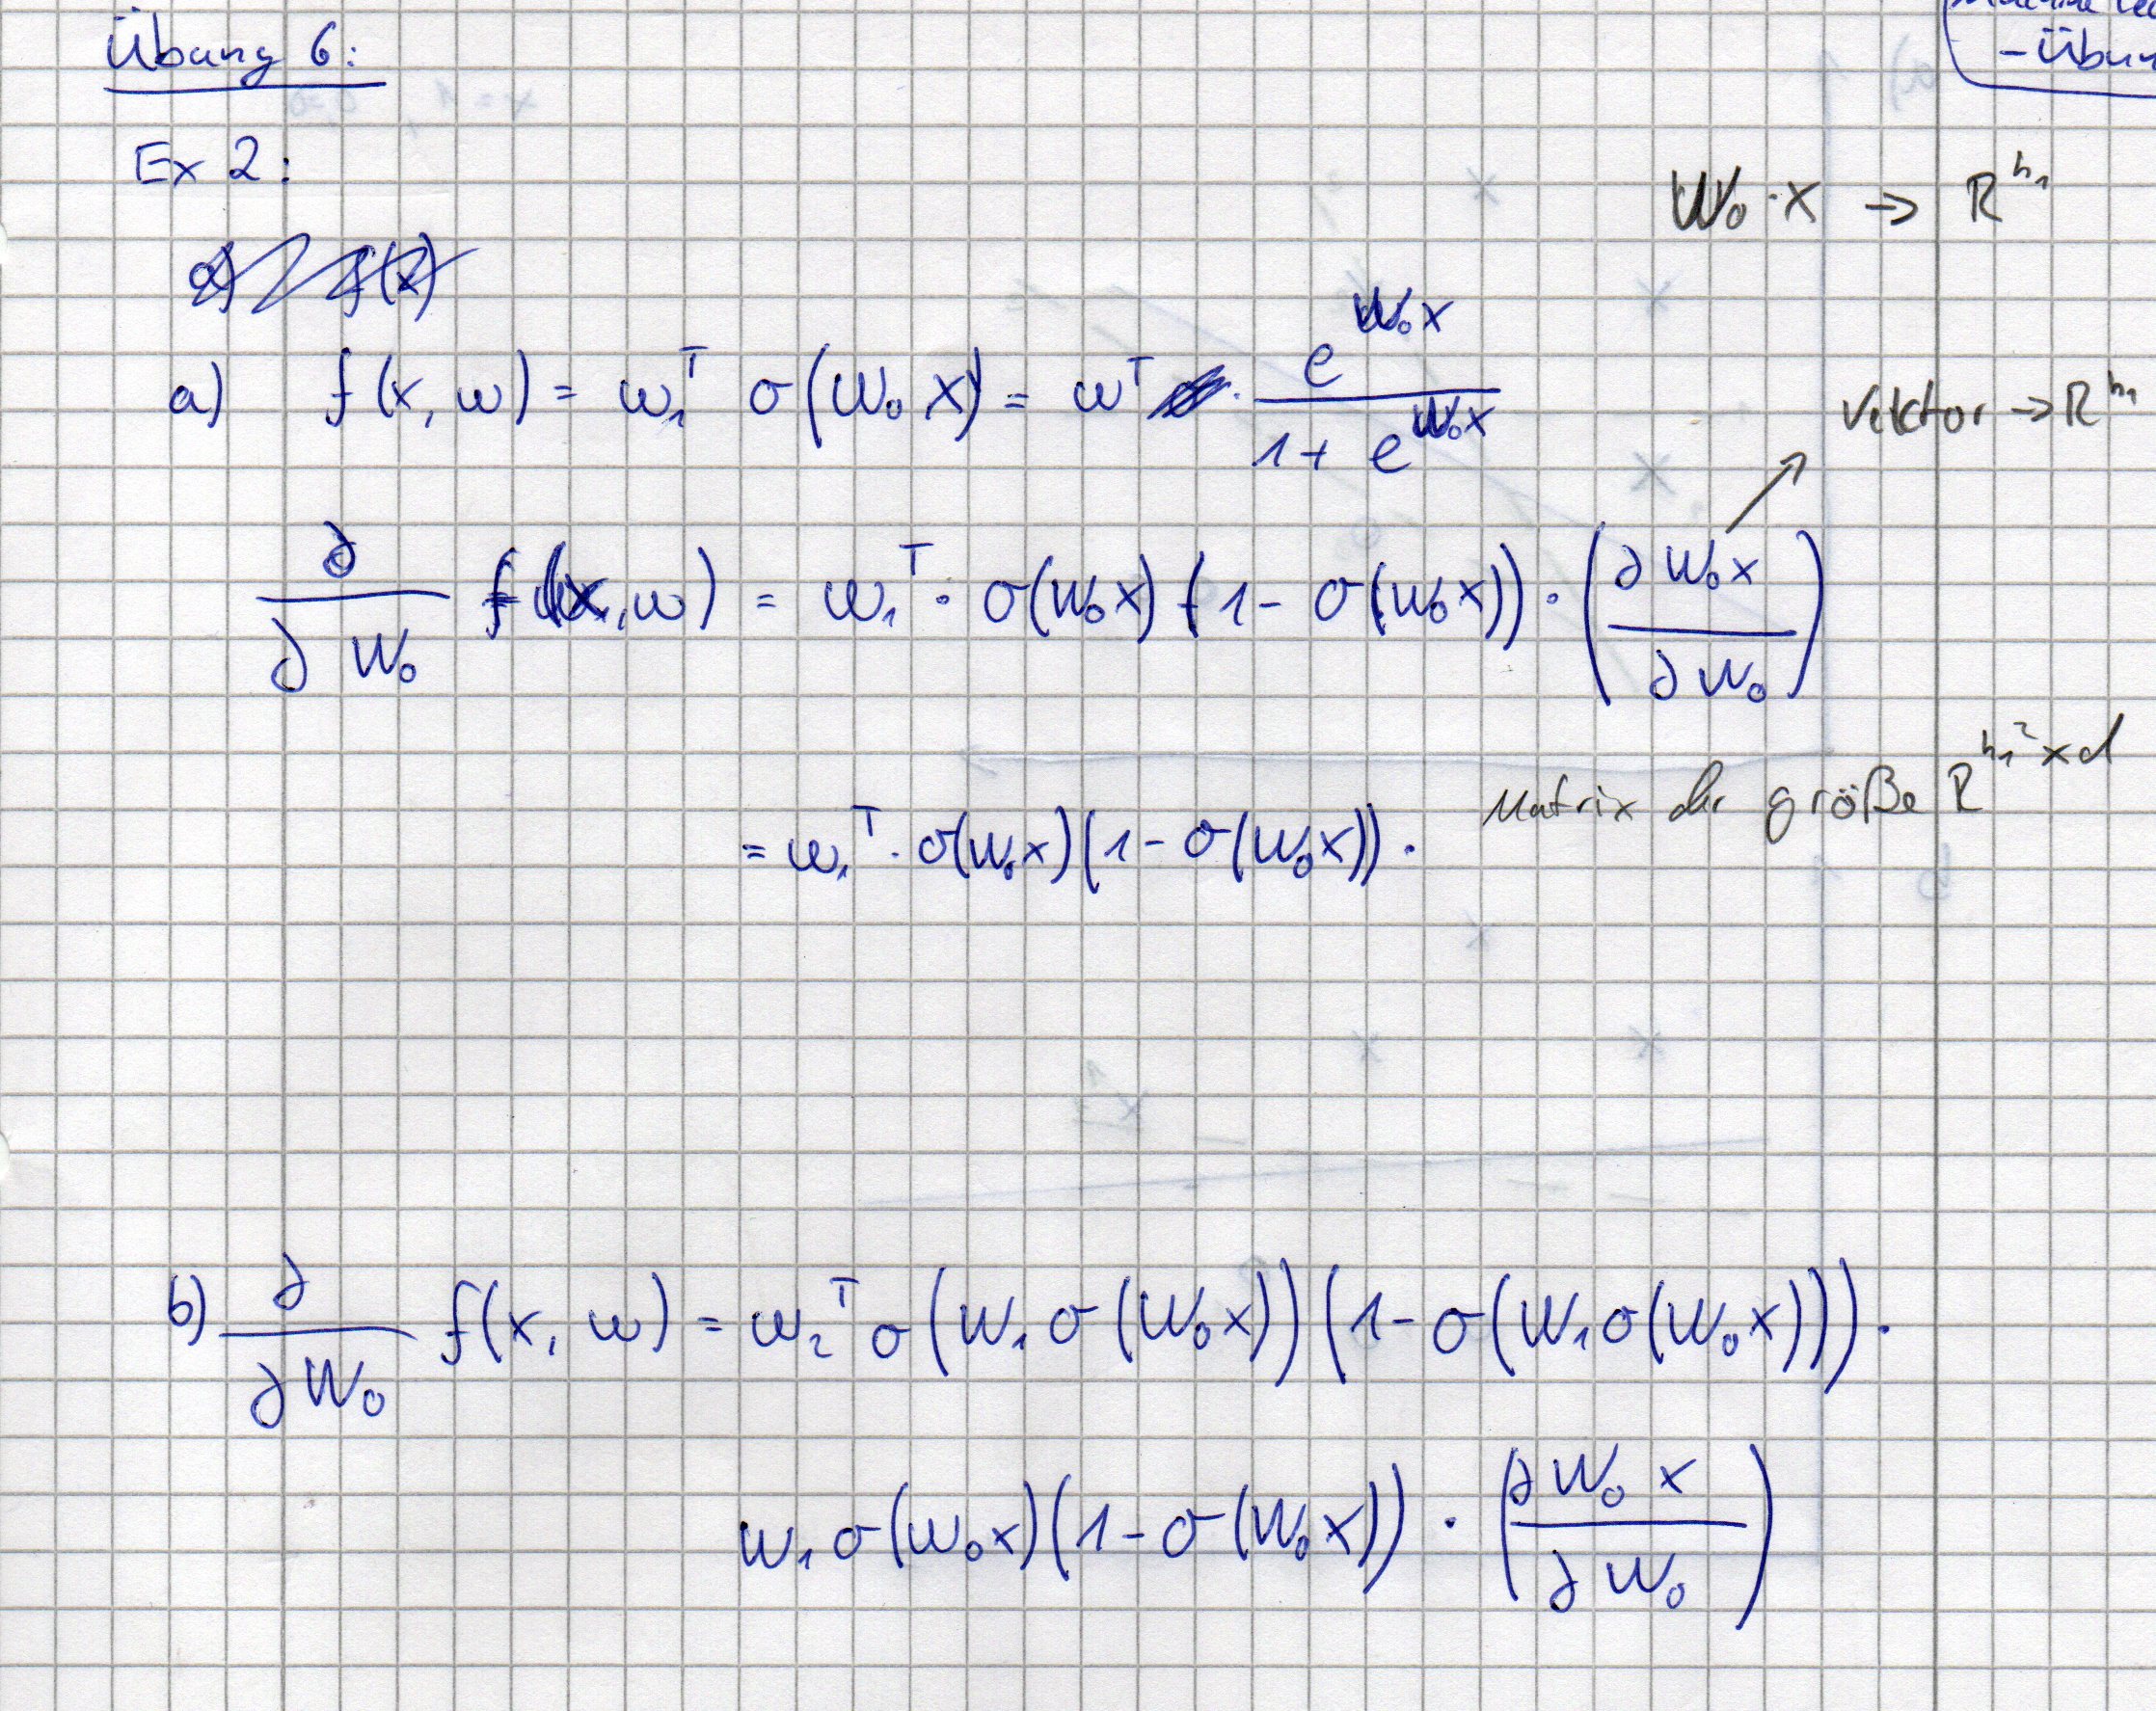 Übung 6:
- Übun
Ex 2:
W₀ · x → R^h₁
a) f(x)
a) f(x, w) = w₁^T σ(W₀ x) = w^T · e^(W₀x) / (1 + e^(W₀x))
Vektor → R^h₁
∂/∂W₀ f(x, w) = w₁^T · σ(W₀x) (1 - σ(W₀x)) · (∂W₀x / ∂W₀)
= w₁^T · σ(W₀x)(1 - σ(W₀x)) · Matrix der größe R^(h₁² × d)
b) ∂/∂W₀ f(x, w) = w₂^T σ(W₁ σ(W₀x))(1 - σ(W₁ σ(W₀x))) ·
W₁ σ(W₀x)(1 - σ(W₀x)) · (∂W₀ x / ∂W₀)